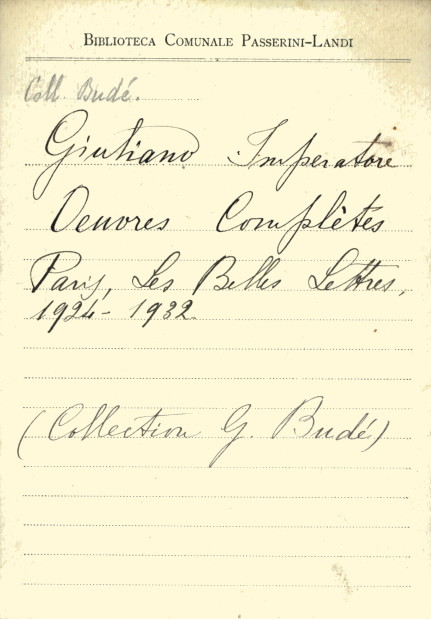 BIBLIOTECA COMUNALE PASSERINI-LANDI
Coll. Budé.
Giuliano Imperatore
Oeuvres Complètes
Paris, Les Belles Lettres,
1924-1932
(Collection G. Budé)